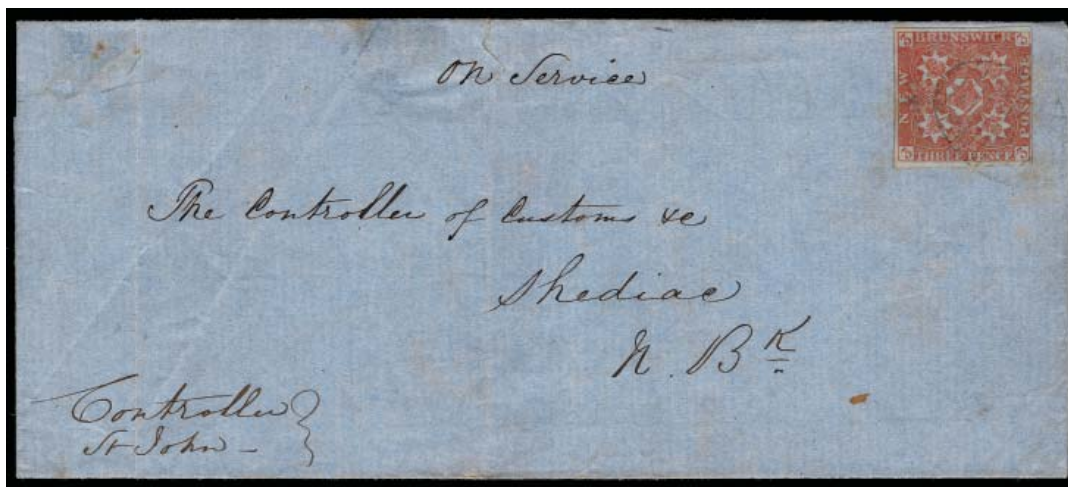 On Service
BRUNSWICK
NEW
POSTAGE
THREE PENCE
The Controller of Customs &c
Shediac
N. B K
Controller
St John -